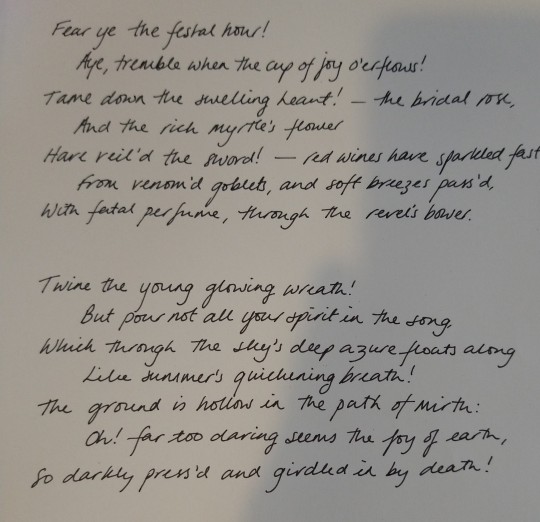 Fear ye the festal hour!
Aye, tremble when the cup of joy o'erflows!
Tame down the swelling heart! – the bridal rose,
And the rich myrtle's flower
Have veil'd the sword! – red wines have sparkled fast
From venom'd goblets, and soft breezes pass'd,
With fatal perfume, through the revel's bower.
Twine the young glowing wreath!
But pour not all your spirit in the song,
Which through the sky's deep azure floats along
Like summer's quickening breath!
The ground is hollow in the path of mirth:
Oh! far too daring seems the joy of earth,
So darkly press'd and girdled in by death!